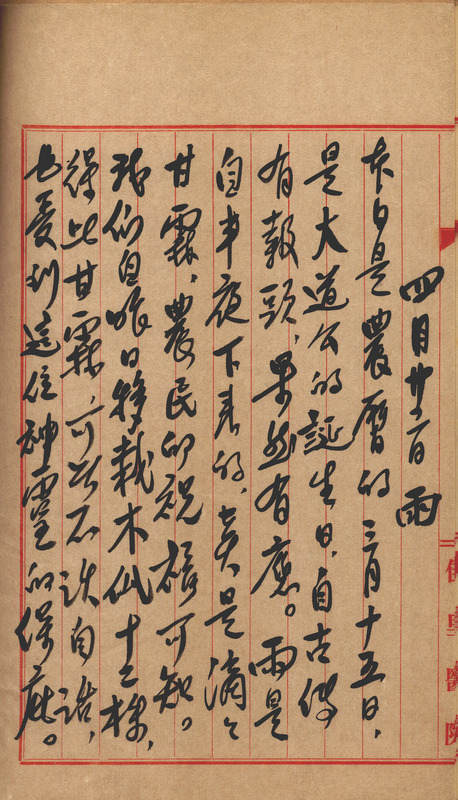 四月廿二日 雨
本日是農曆的三月十五日,
是大道公的誕生日,自古傳
有報頭,果然有應。雨是
自半夜下來的,真是滴々
甘霖,農民的祝禱可知。
我們自昨日移栽木瓜十二株,
得此甘霖,可說不 自 ,
也受到這位神靈的保庇。
佳里醫院